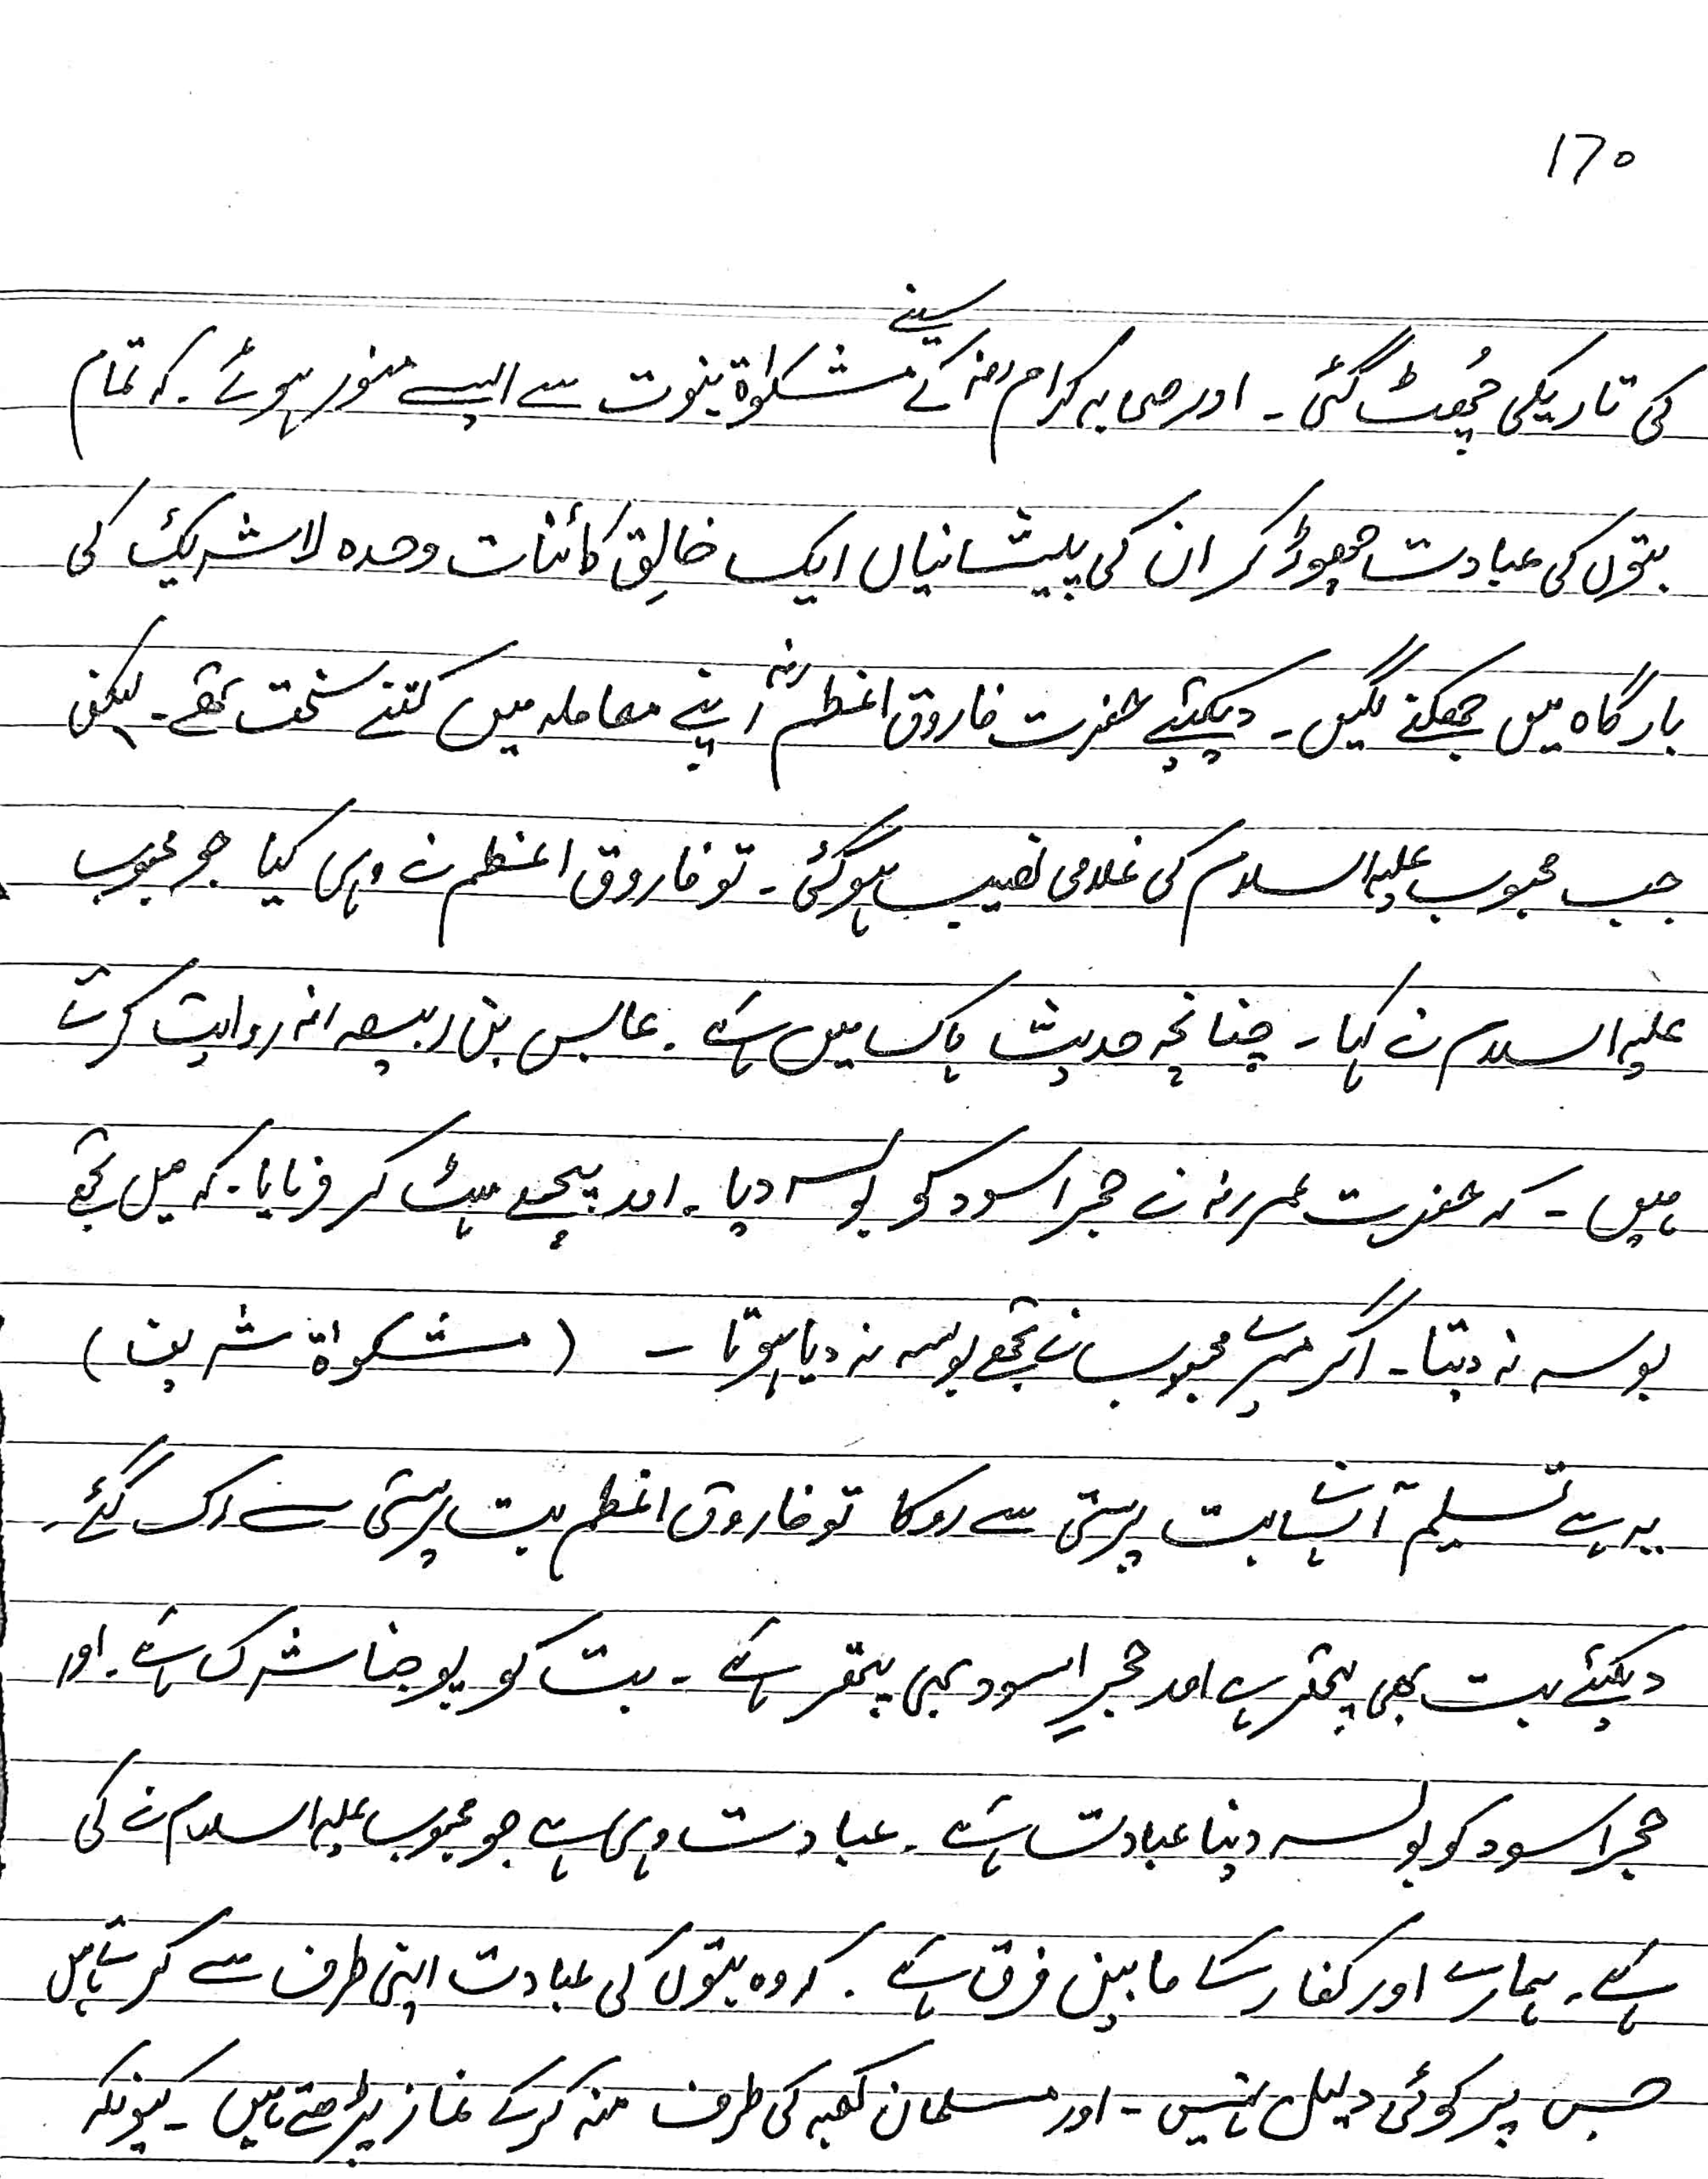 ۱۷۰
کی تاریکی چُھٹ گئی ۔ اور صحابہ کرام رضہ کے سینے مشکوٰۃ نبوت سے ایسے منور ہوئے ۔ کہ تمام
بتوں کی عبادت چھوڑ کر ان کی پیشانیاں ایک خالِق کائنات وحدہ لاشریک کی
بارگاہ میں جھکنے لگیں ۔ دیکھئیے حضرت فاروق اعظم رضہ اپنے معاملہ میں کتنے سخت تھے ۔ لیکن
جب محبوب علیہ السلام کی غلامی نصیب ہوگئی ۔ تو فاروق اعظم نے وہی کیا جو محبوب
علیہ السلام نے کہا ۔ چنانچہ حدیث پاک میں ہے ۔ عابس بن ربیعہ رضہ روایت کرتے
ہیں ۔ کہ حضرت عمر رضہ نے حجر اسود کو بوسہ دیا ۔ اور پیچھے ہٹ کر فرمایا ۔ کہ میں تجھے
بوسہ نہ دیتا ۔ اگر میرے محبوب نے تجھے بوسہ نہ دیا ہوتا ۔ ( مشکوٰۃ شریف )
یہ ہے تسلیم آپ نے بت پرستی سے روکا تو فاروق اعظم بت پرستی سے رک گئے ۔
دیکھئیے بت بھی پتھر ہے اور حجرِ اسود بھی پتھر ہے ۔ بت کو پوجنا شرک ہے ۔ اور
حجر اسود کو بوسہ دینا عبادت ہے ۔ عبادت وہی ہے جو محبوب علیہ السلام نے کی
ہے ۔ ہمارے اور کفار کے مابین فرق ہے ۔ کہ وہ بتوں کی عبادت اپنی طرف سے کرتے ہیں
جس پر کوئی دلیل نہیں ۔ اور مسلمان کعبہ کی طرف منہ کرکے نماز پڑھتے ہیں ۔ کیونکہ